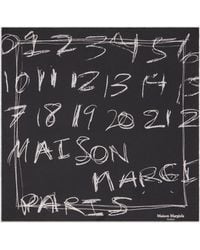 0 1 2 3 4 5 1
10 11 12 13 14 15
7 18 19 20 21 2
MAISON
MARGI
PARIS
Maison Margiela